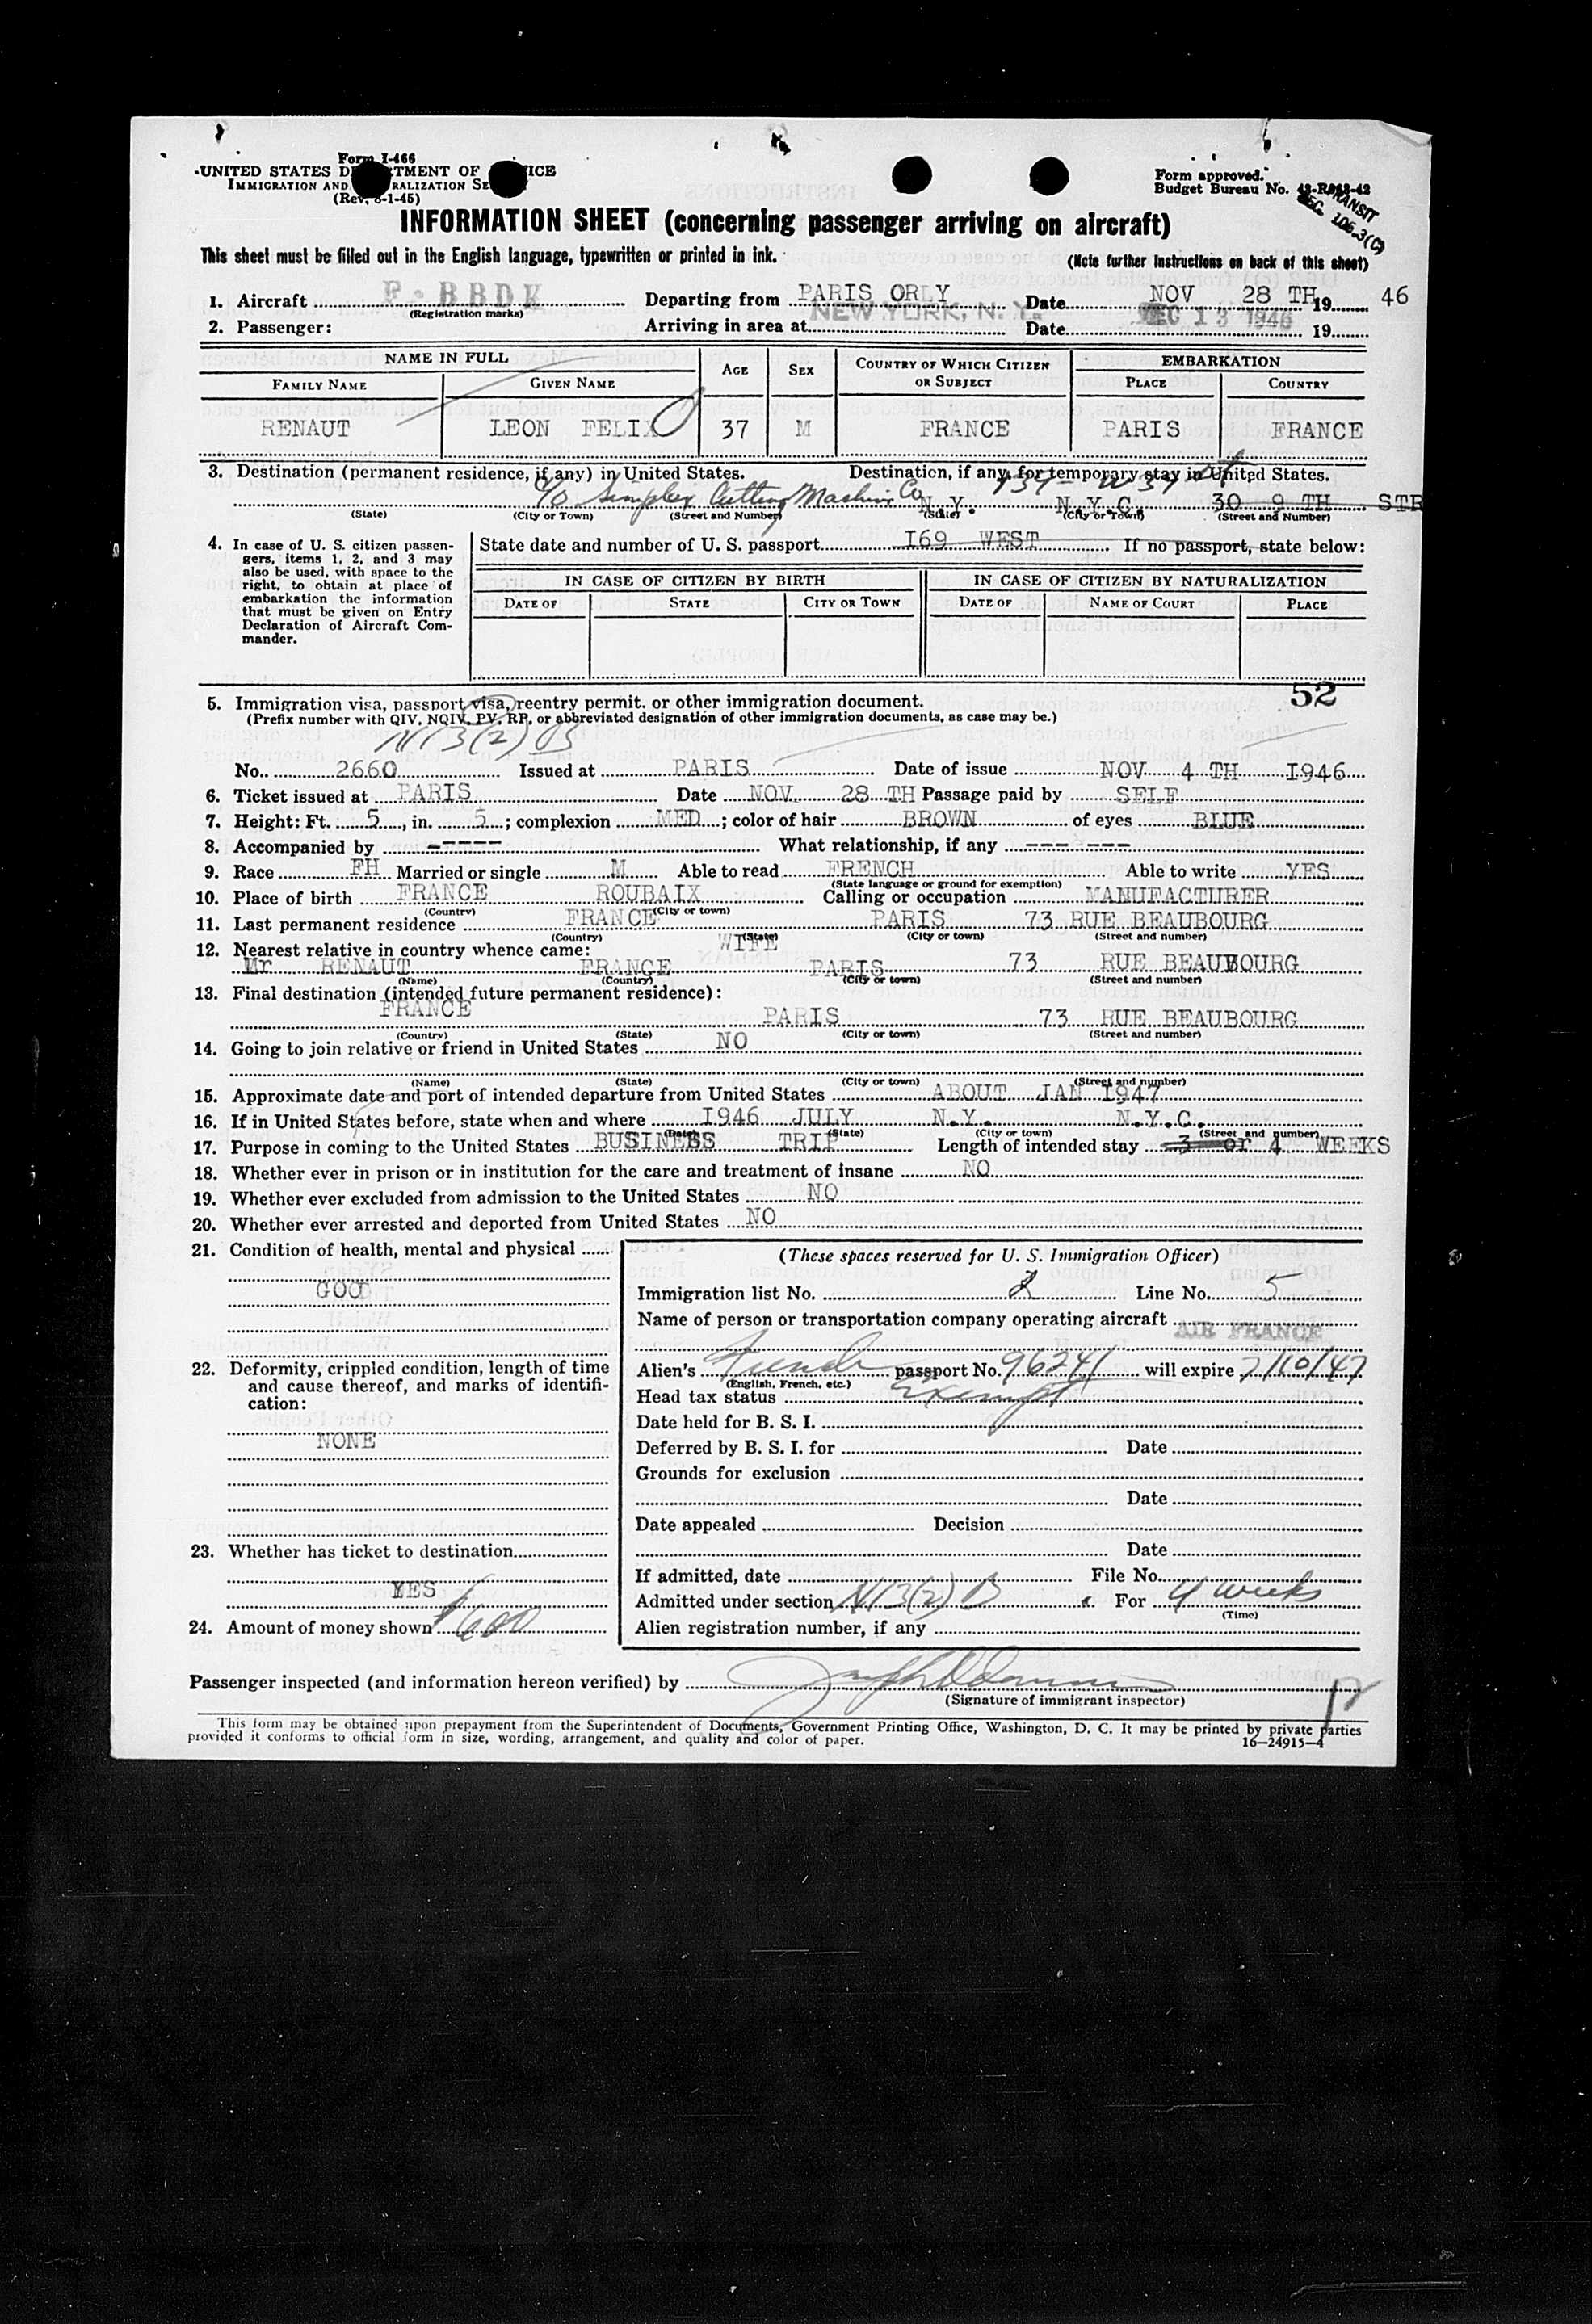 Form I-466
UNITED STATES DEPARTMENT OF JUSTICE
IMMIGRATION AND NATURALIZATION SERVICE
(Rev. 8-1-45)
Form approved.
Budget Bureau No. 43-R063-42
TRANSIT
SEC. 106.3(C)
INFORMATION SHEET (concerning passenger arriving on aircraft)
This sheet must be filled out in the English language, typewritten or printed in ink.
(Note further instructions on back of this sheet)
1. Aircraft F-BBDK Departing from PARIS ORLY Date NOV 28 TH 19 46
(Registration marks)
2. Passenger: Arriving in area at NEW YORK, N. Y. Date DEC 13 1946 19
NAME IN FULL AGE SEX COUNTRY OF WHICH CITIZEN OR SUBJECT EMBARKATION
FAMILY NAME GIVEN NAME PLACE COUNTRY
RENAUT LEON FELIX 37 M FRANCE PARIS FRANCE
3. Destination (permanent residence, if any) in United States. Destination, if any, for temporary stay in United States.
c/o Simplex Cutting Machine Co N.Y. N.Y.C. 30 9 TH STR
(State) (City or Town) (Street and Number) (State) (City or Town) (Street and Number)
4. In case of U. S. citizen passengers, items 1, 2, and 3 may also be used, with space to the right, to obtain at place of embarkation the information that must be given on Entry Declaration of Aircraft Commander.
State date and number of U. S. passport I69 WEST If no passport, state below:
IN CASE OF CITIZEN BY BIRTH IN CASE OF CITIZEN BY NATURALIZATION
DATE OF STATE CITY OR TOWN DATE OF NAME OF COURT PLACE
52
5. Immigration visa, passport visa, reentry permit, or other immigration document.
(Prefix number with QIV, NQIV, PV, RP, or abbreviated designation of other immigration documents, as case may be.)
N13(2)B
No. 2660 Issued at PARIS Date of issue NOV 4 TH I946
6. Ticket issued at PARIS Date NOV. 28 TH Passage paid by SELF
7. Height: Ft. 5, in. 5; complexion MED; color of hair BROWN of eyes BLUE
8. Accompanied by ----- What relationship, if any --- ---
9. Race FH Married or single M Able to read FRENCH Able to write YES
(State language or ground for exemption)
10. Place of birth FRANCE ROUBAIX Calling or occupation MANUFACTURER
(Country) (City or town)
11. Last permanent residence FRANCE PARIS 73 RUE BEAUBOURG
(Country) (State) (City or town) (Street and number)
12. Nearest relative in country whence came: WIFE
Mr RENAUT FRANCE PARIS 73 RUE BEAUBOURG
(Name) (Country) (City or town) (Street and number)
13. Final destination (intended future permanent residence):
FRANCE PARIS 73 RUE BEAUBOURG
(Country) (State) (City or town) (Street and number)
14. Going to join relative or friend in United States NO
(Name) (State) (City or town) (Street and number)
15. Approximate date and port of intended departure from United States ABOUT JAN I947
16. If in United States before, state when and where I946 JULY N.Y. N.Y.C.
(Date) (State) (City or town) (Street and number)
17. Purpose in coming to the United States BUSINESS TRIP Length of intended stay 3 or 4 WEEKS
18. Whether ever in prison or in institution for the care and treatment of insane NO
19. Whether ever excluded from admission to the United States NO
20. Whether ever arrested and deported from United States NO
21. Condition of health, mental and physical
GOOD
22. Deformity, crippled condition, length of time and cause thereof, and marks of identification:
NONE
23. Whether has ticket to destination
YES
24. Amount of money shown $600
(These spaces reserved for U. S. Immigration Officer)
Immigration list No. 2 Line No. 5
Name of person or transportation company operating aircraft AIR FRANCE
Alien's French passport No. 96241 will expire 7/10/47
(English, French, etc.)
Head tax status Exempt
Date held for B. S. I.
Deferred by B. S. I. for Date
Grounds for exclusion
Date
Date appealed Decision
Date
If admitted, date File No.
Admitted under section N13(2)B For 4 weeks
(Time)
Alien registration number, if any
Passenger inspected (and information hereon verified) by
(Signature of immigrant inspector)
This form may be obtained upon prepayment from the Superintendent of Documents, Government Printing Office, Washington, D. C. It may be printed by private parties
provided it conforms to official form in size, wording, arrangement, and quality and color of paper. 16—24915-4